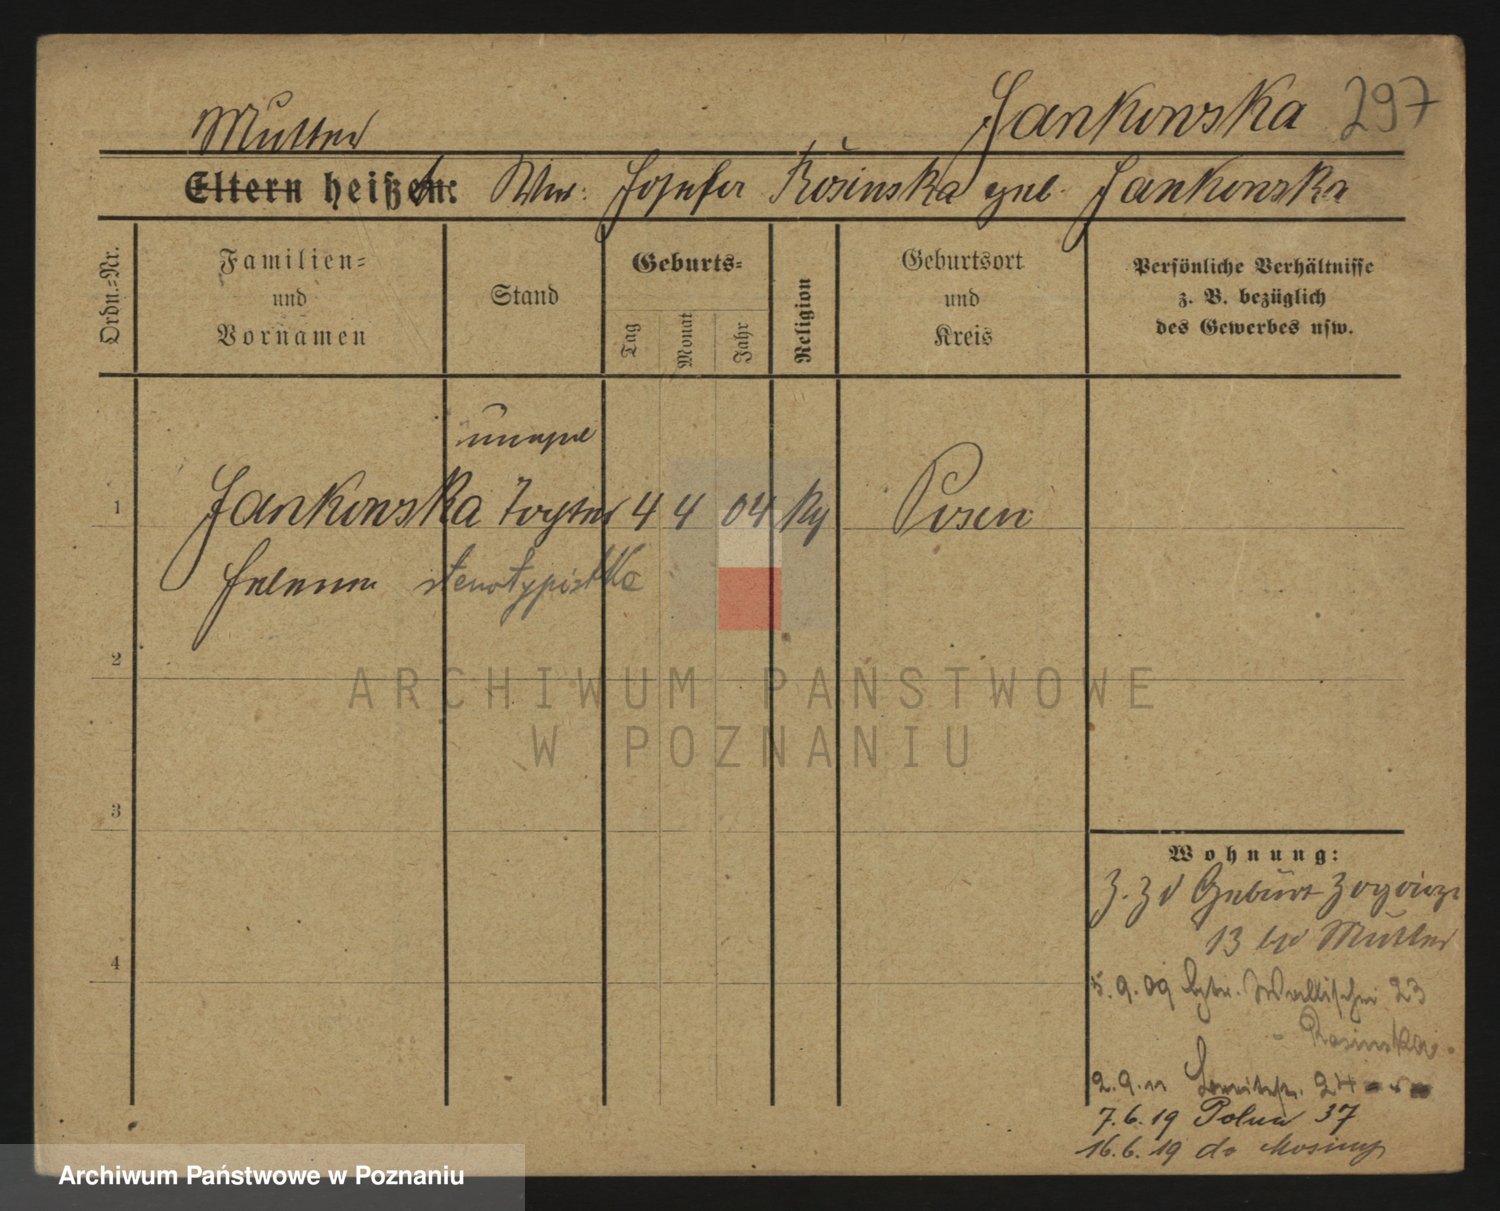 Jankowska 297
Mutter
Eltern heißen: Ww: Josefa Rosinska geb. Jankowska
Ordn.=Nr.
Familien=
und
Vornamen
Stand
Geburts=
Tag
Monat
Jahr
Religion
Geburtsort
und
Kreis
Persönliche Verhältnisse
z. B. bezüglich
des Gewerbes usw.
unehel
1 Jankowska Tochter 4 4 04 Posen
Helena stenotypistka
2
3
4
Wohnung:
z. Zt Geburt
13 Mutter
5.9.09 Wallischei 23
Rosinska
2.9.11 24
7.6.19 Polna 37
16.6.19 do Mosiny
ARCHIWUM PAŃSTWOWE
W POZNANIU
Archiwum Państwowe w Poznaniu